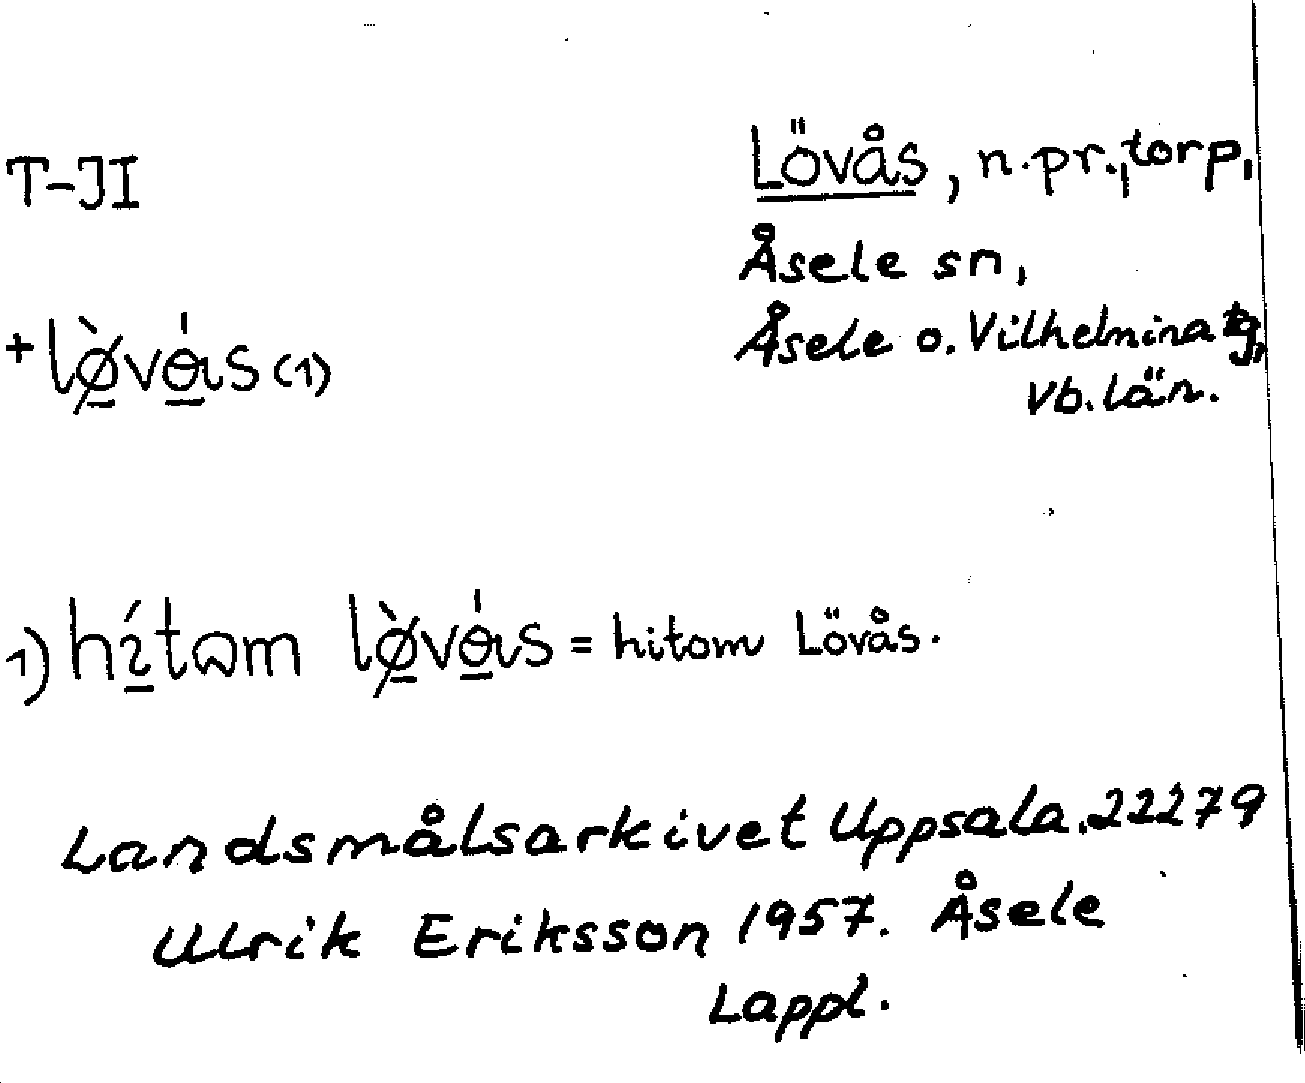 T-JI
Lövås, n.pr., torp,
Åsele sn,
Åsele o. Vilhelmina tg,
Vb. län.
+lø̀vás (1)
1) hítɷm lø̀vás = hitom Lövås.
Landsmålsarkivet Uppsala. 22279
Ulrik Eriksson 1957. Åsele
Lappl.